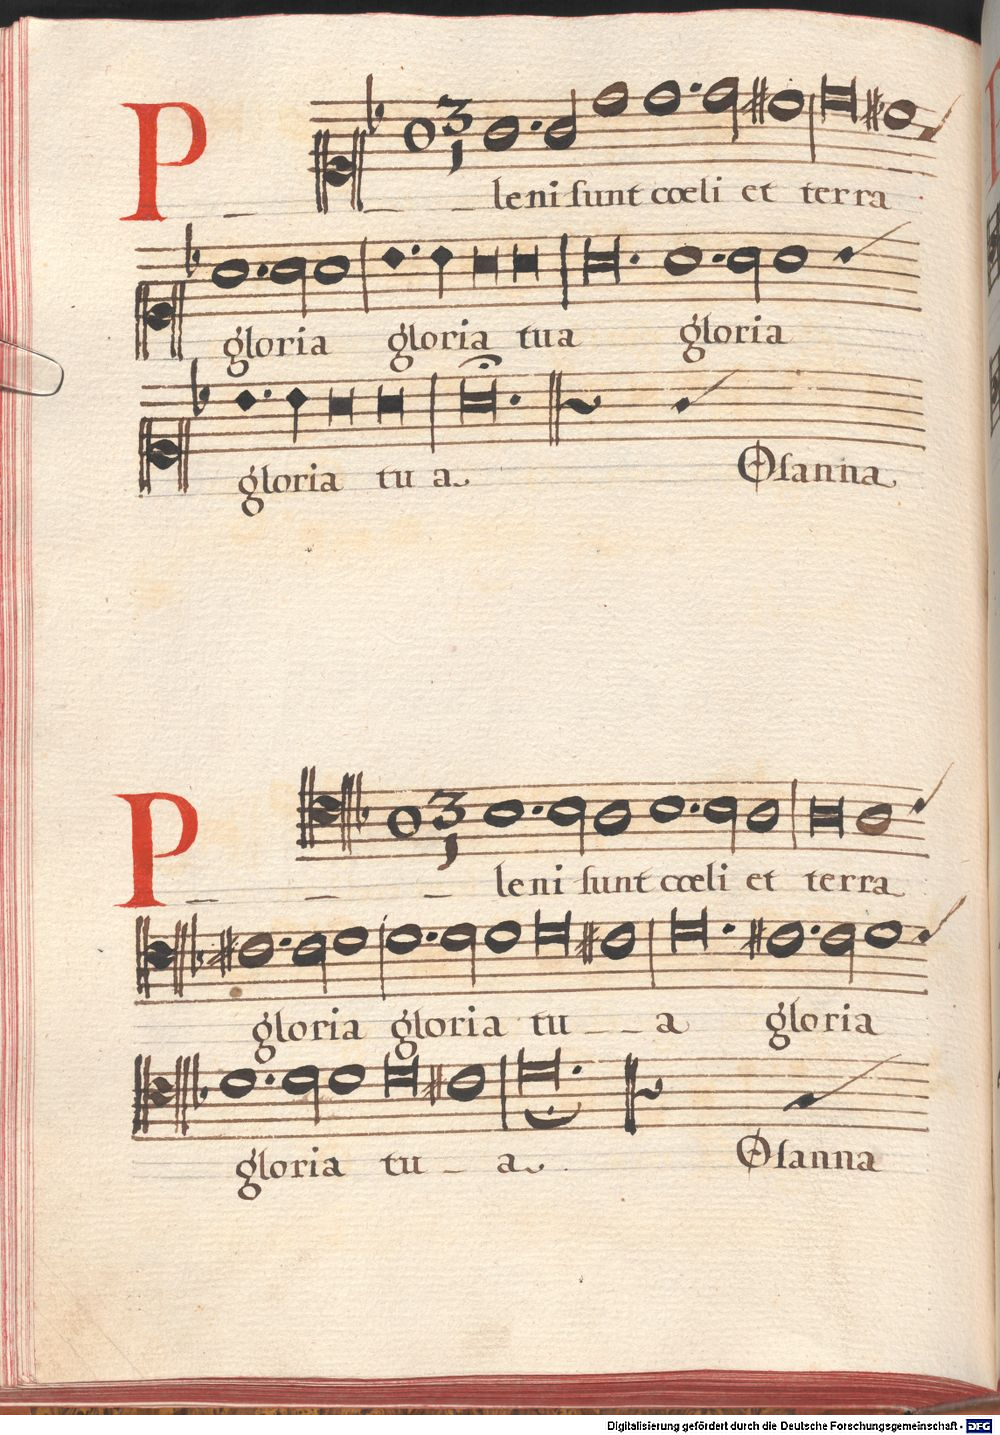 P_ _ _ leni ſunt cœli et terra
gloria gloria tua gloria
gloria tu a Oſanna
P_ _ _ leni ſunt cœli et terra
gloria gloria tu _ _ a gloria
gloria tu _ a Oſanna
Digitalisierung gefördert durch die Deutsche Forschungsgemeinschaft - DFG